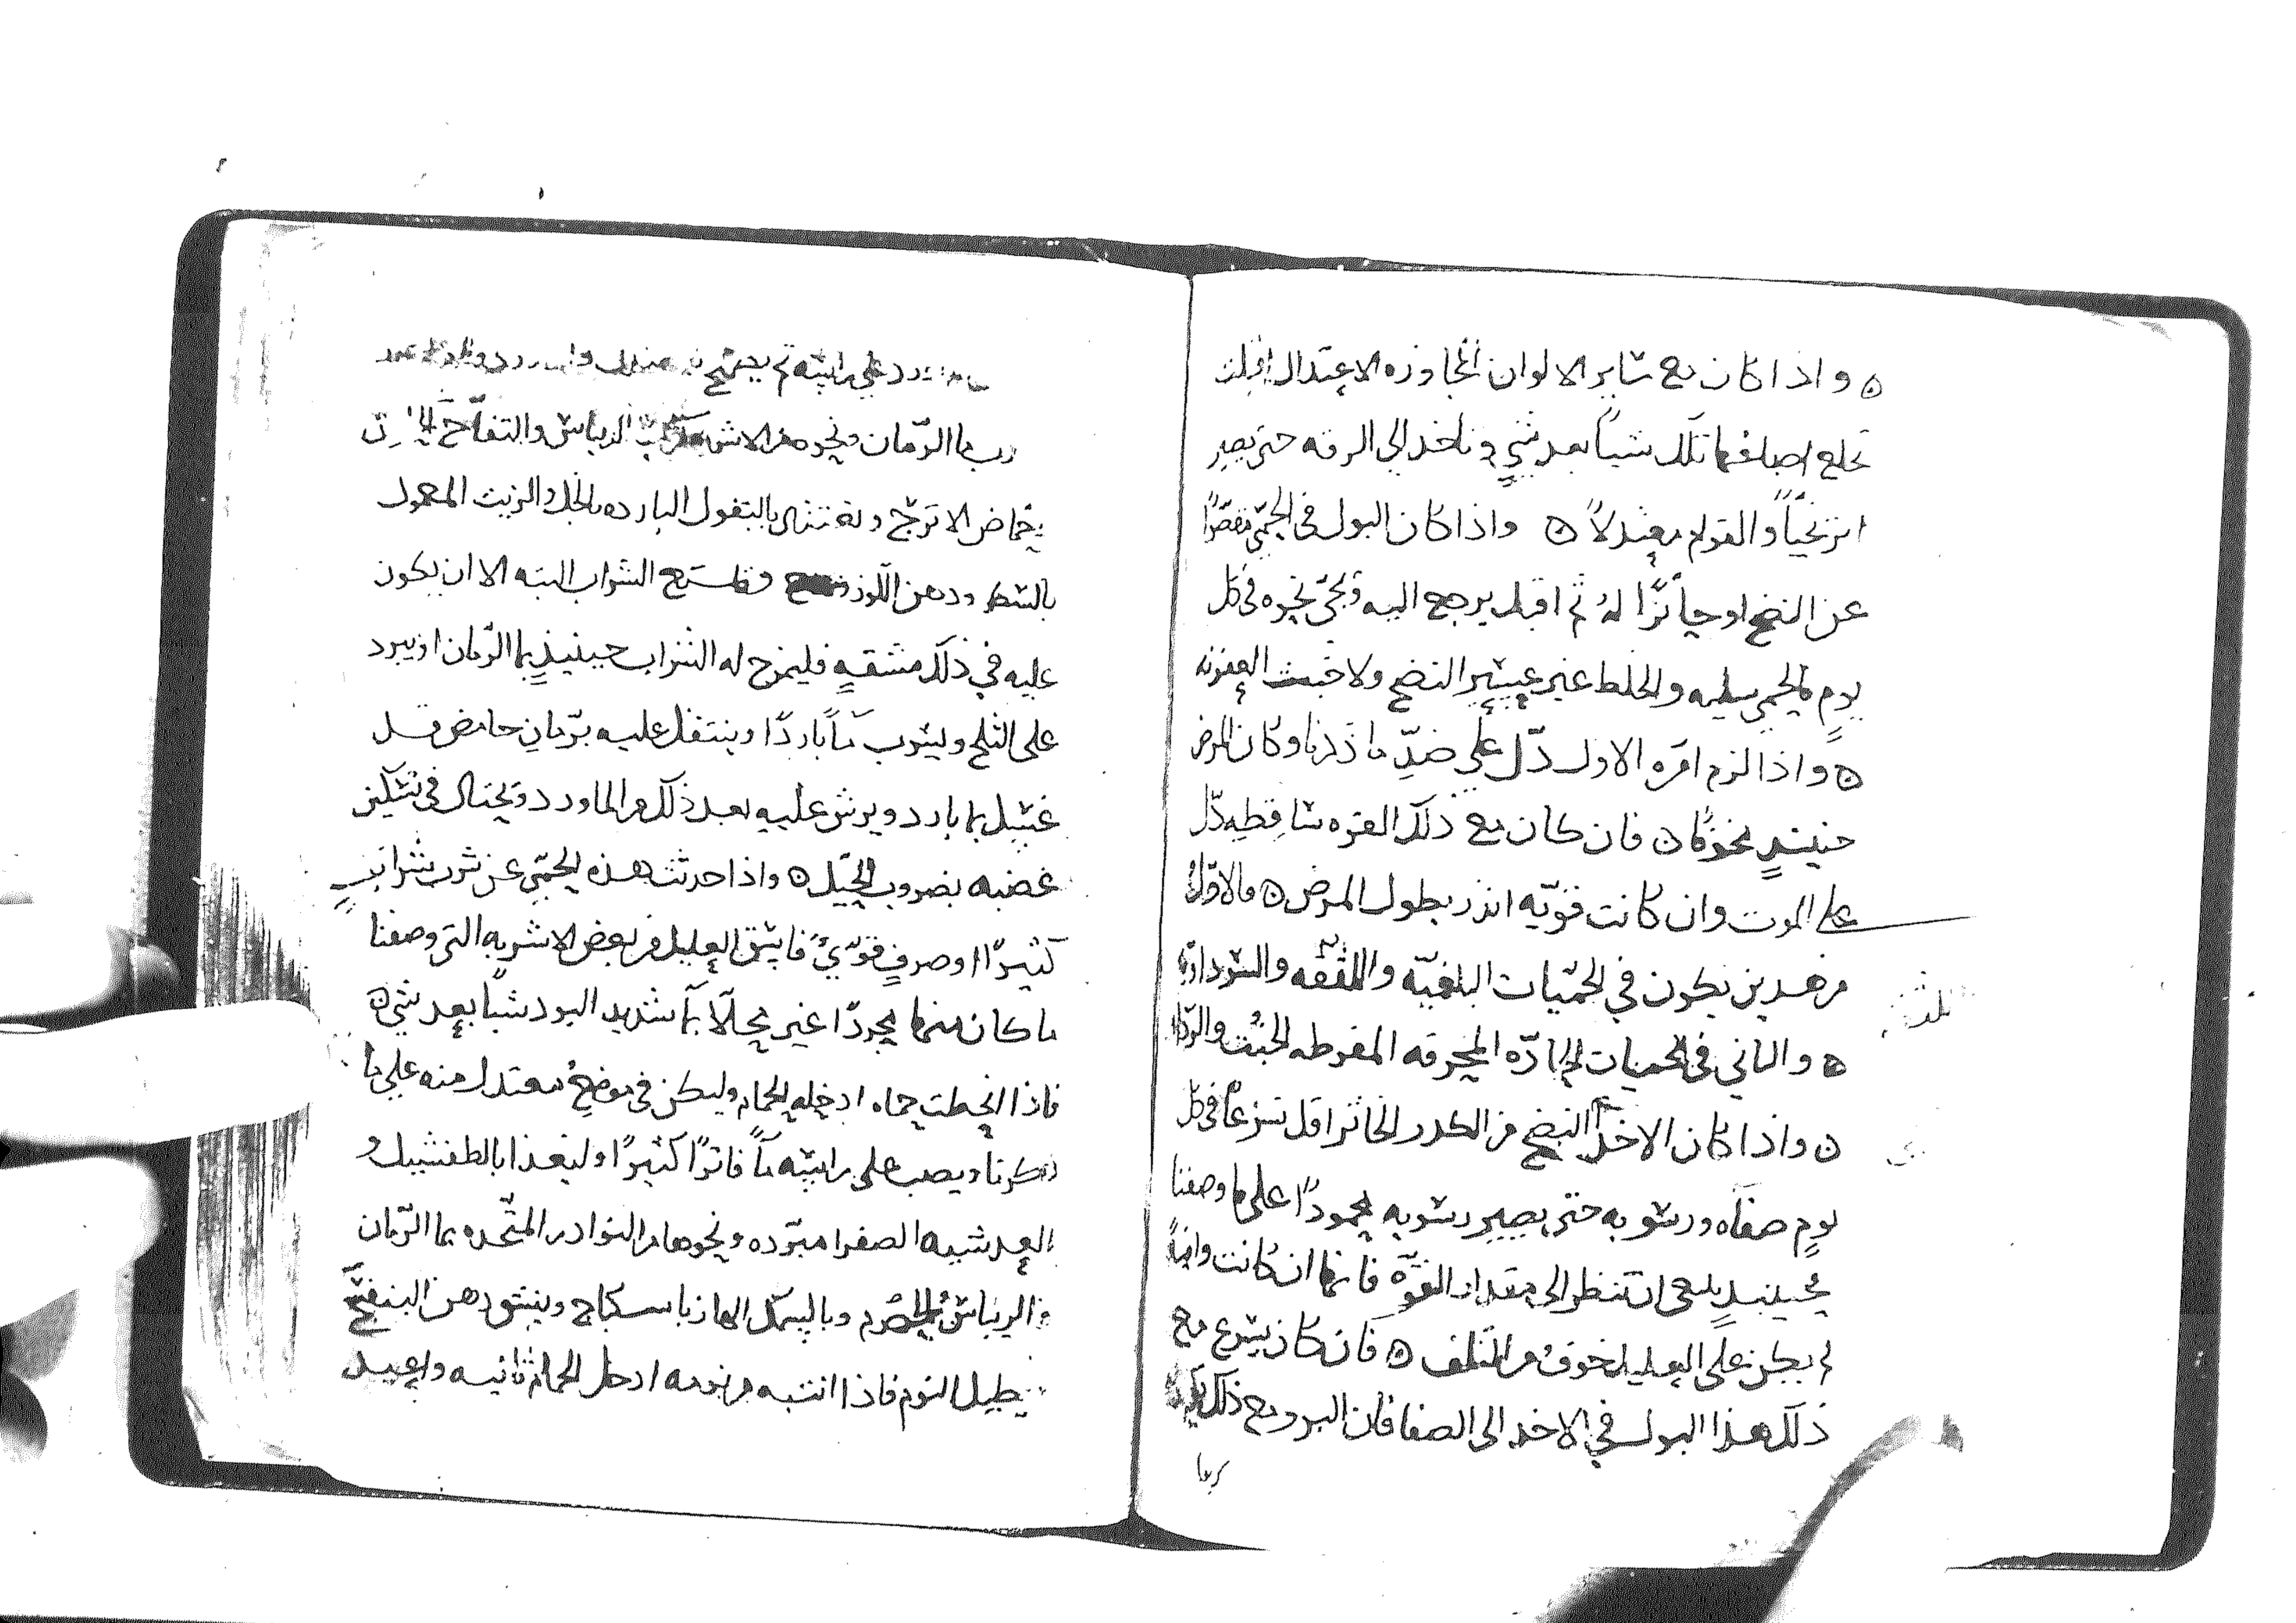 واذا كان مع ساير الالوان المجاوزه الاعتدال اقبلت
تخلع اصباغها تلك شياً بعد شي وتاخد الى الرقه حتى يصير
اترنجياً والقوام معتدلاً واذا كان البول في الحمى مقصّراً
عن النضج او جائزًا لهُ ثم اقبل يرجع اليه ويجي نحوه في كل
يومٍ فالحمى سليمه والخلط غير عسير النضج ولا خبيث العفونه
واذا لزم امره الاول دّل على ضدّ ما ذكرنا وكان المرض
حينيذٍ مخوفًا فان كان مع ذلك القوه ساقطه دّل
على الموت وان كانت قويّه انذر بطول المرض والاول
من هدين يكون في الحمّيات البلغميّه والملفقه والسوداويه
والثاني في الحميات الحادّه المحرقه المفرطه الخبث والرداه
واذا كان الاخد الى النضج من الكدر الخاثر اقل تسرعاً في كل
يومٍ صفآه ورسوبه حتى يصير رسوبه محمودًا على ما وصفنا
فحينيذٍ ينبغي ان تنظر الى مقدار القوّه فانها ان كانت وافيةً
لم يكن على العليل خوفُ من التلف فان كان يسرع مع
ذلك هذا البول في الاخد الى الصفا فان البرو مع ذلك
على راسه ثم يضمخ بالصندل والماورد
رب ما الرّمان ونحوه من الاشربه الريباس والتفاح
بحماض الاترج ويغتذى بالبقول البارده بالخل والزيت المعمول
بالسكر ودهن اللوز الشراب البته الا ان يكون
عليه في ذلك مشقهٍ فليمزج له الشراب حينيذٍ بما الرّمان او يبرد
على الثلج ويشرب مآً باردًا وينتقل عليه برّمانٍ حامض قد
غسل بما بارد ويرش عليه بعد ذلك من الماورد ويحتال في تسكين
غضبه بضروب الحيل واذا حدثت هذه الحمّى عن شرب شرابٍ
كثيرًا او صرفٍ قويٍّ فاسق العليل من بعض الاشربه التي وصفنا
ما كان منها مجردًا غير محلًا بمآ شديد البرد شياً بعد شي
فاذا انحطت حماه ادخله الحمام وليكن في موضعٍ معتدل منه على ما
ذكرنا ويصب على راسه مآً فاترًا كثيرًا وليغذا بالطفشيل و
العدسيه الصفرا مبرّده ونحوها من البوادر المتّخده بما الرّمان
والريباس والحصرم وبالسمك الهازبا سكباج وينشق دهن البنفسج
يطيل النوم فاذا انتبه من نومه ادخل الحمام ثانيه واعيد